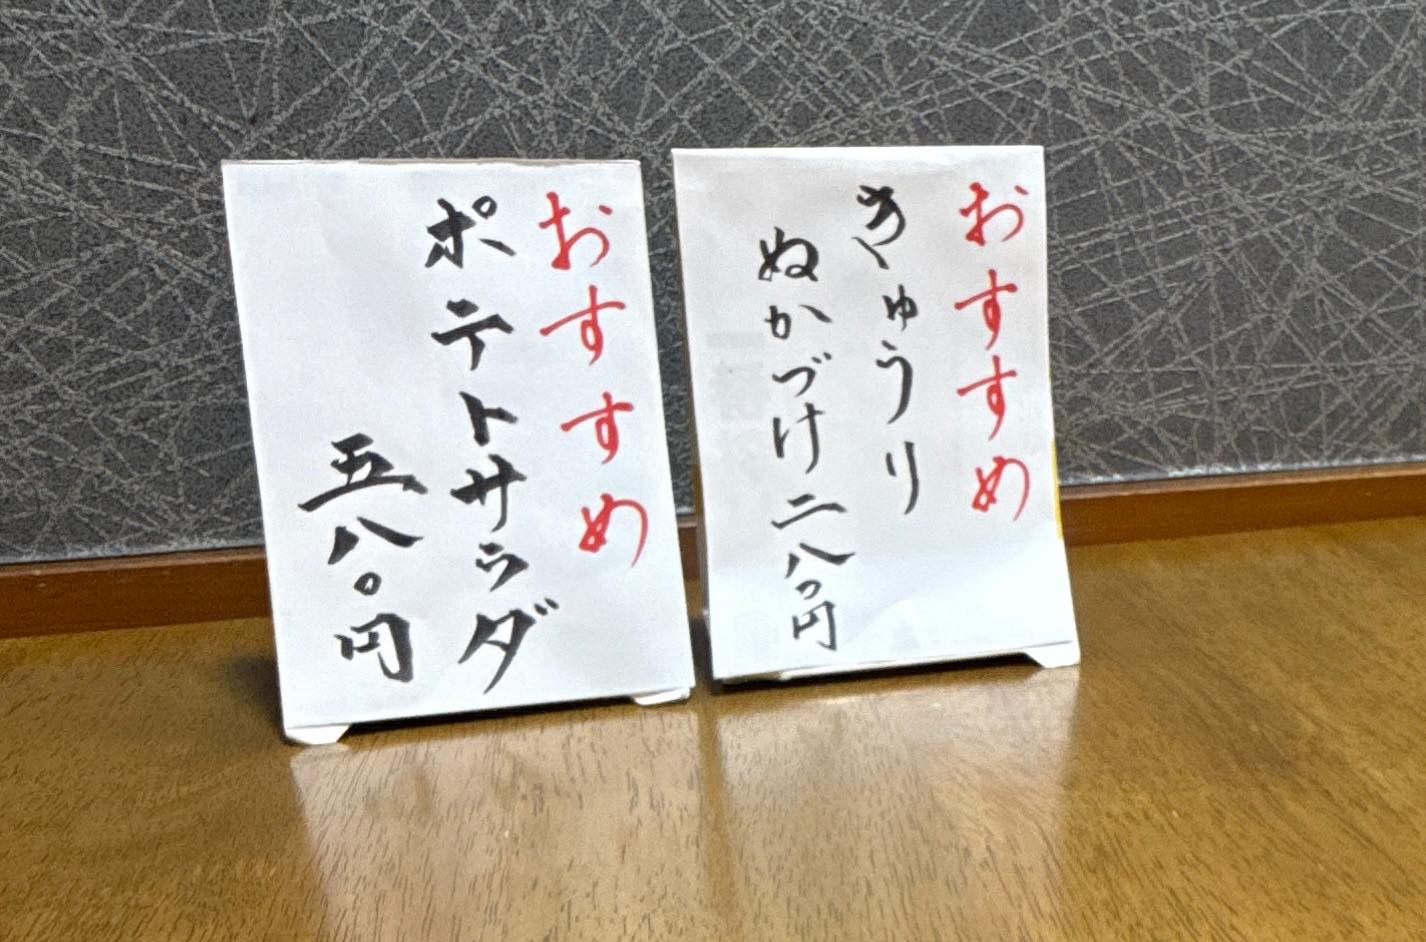 おすすめ
ポテトサラダ
五八〇円
おすすめ
きゅうり
ぬかづけ二八〇円